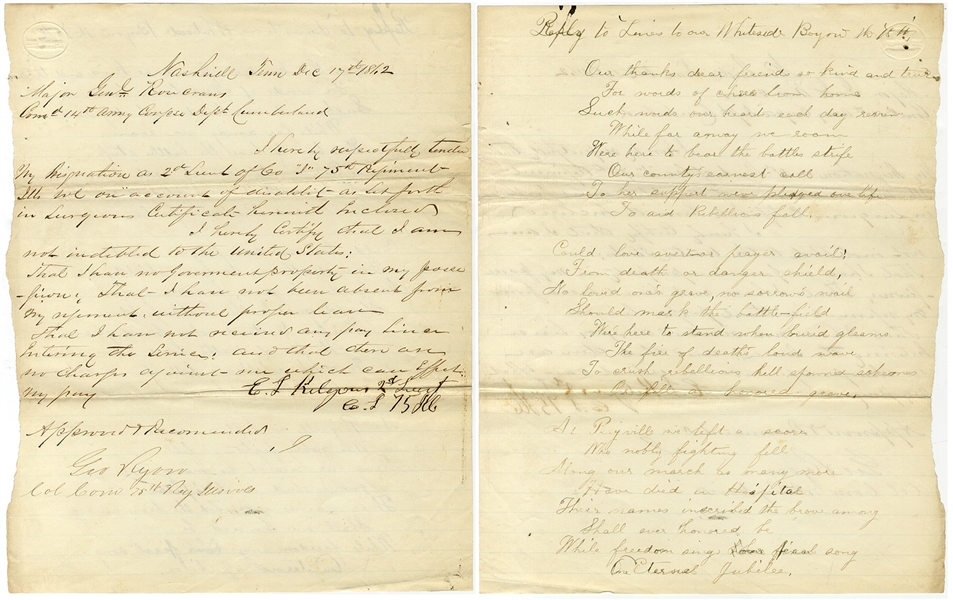 Nashvill Tenn Dec 17th 1862
Major Genl Rosecrans
Comd 14th Army Corpse Dept Cumberland
I hereby respectfully tender
My resignation as 2d Lieut of Co "I" 75th Regiment
Ills vol on account of disability as set forth
in Surgeons Certificate herewith Inclosed
I hereby Certify that I am
not indebted to the United States;
That I have no Goverment property in my posse
-ssion; That I have not been absent from
My regiment without proper leave
That I have not received any pay since
Entering the Service; and that there are
no charges against me which can effect
my pay
E. S. 2d Lieut
Co. I 75 Ill
Approved & Recomended
Geo Ryon
Col Com 75th Reg Illinois
Reply to Lines to our Whiteside Boys in the 75th
Our thanks dear friends so kind and true
For words of cheer from home
Such words our hearts each day renew
While far away we roam
Were here to bear the battles strife
Our country earnest call
To her support weve pledged our life
To aid Rebellious fall.
Could love avert or prayer avail;
From death or danger shield,
No loved one's grave, no sorrow's wail
Should mark the battle-field
Were here to stand when lurid gleams
The fire of death's loud wave
To crush rebellious hell spawned
Or fill an honored grave.
At Pryvill we left a score
Who nobly fighting fell
Along our march as many more
Have died in Hospital
Their names inscribed the brave among
Shall ever honored be
While freedom sing song
An Eternal Jubilee.